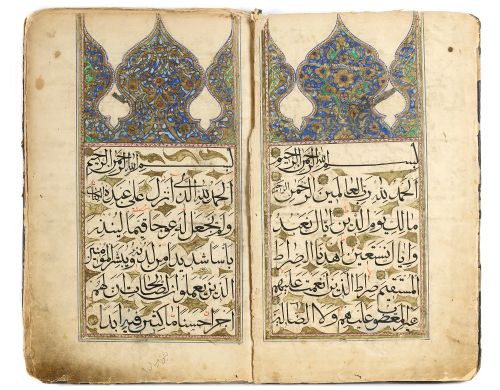 بسم الله الرحمن الرحيم
الحمد لله رب العالمين الرحمن الرحيم
مالك يوم الدين اياك نعبد
واياك نستعين اهدنا الصراط
المستقيم صراط الذين انعمت عليهم
غير المغضوب عليهم ولا الضالين
بسم الله الرحمن الرحيم
الحمد لله الذي انزل على عبده الكتاب
ولم يجعل له عوجا قيما لينذر
باسا شديدا من لدنه ويبشر المؤمنين
الذين يعملون الصالحات ان لهم
اجرا حسنا ماكثين فيه ابدا